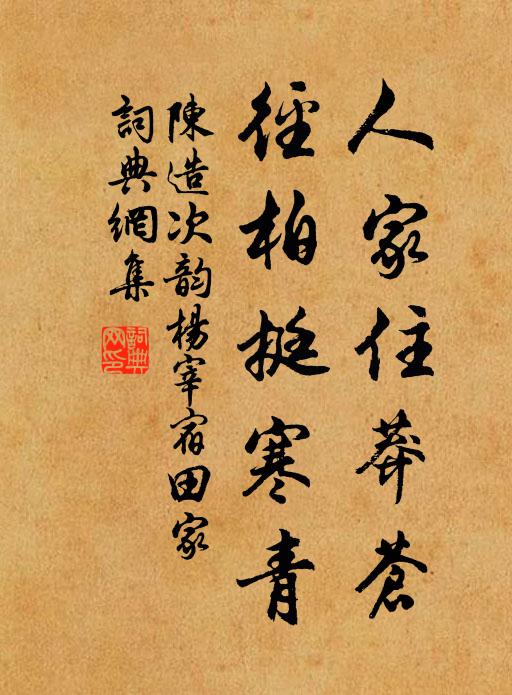 人家住莽蒼
徑柏挺寒青
陳造次韵楊宰宿田家
詞典網集
詞典网印